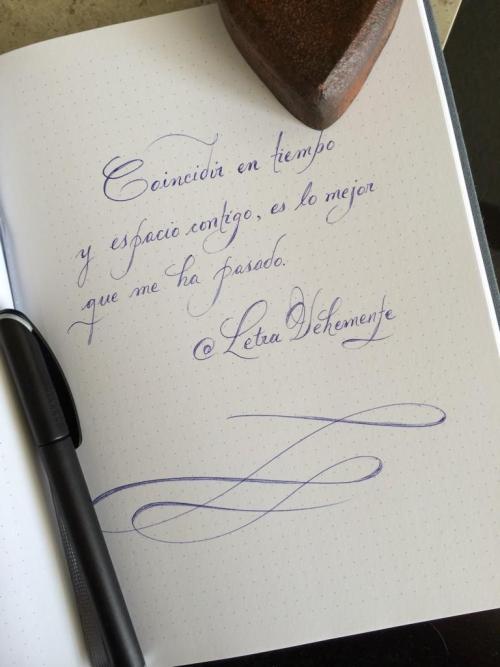 Coincidir en tiempo
y espacio contigo, es lo mejor
que me ha pasado.
@Letra Vehemente